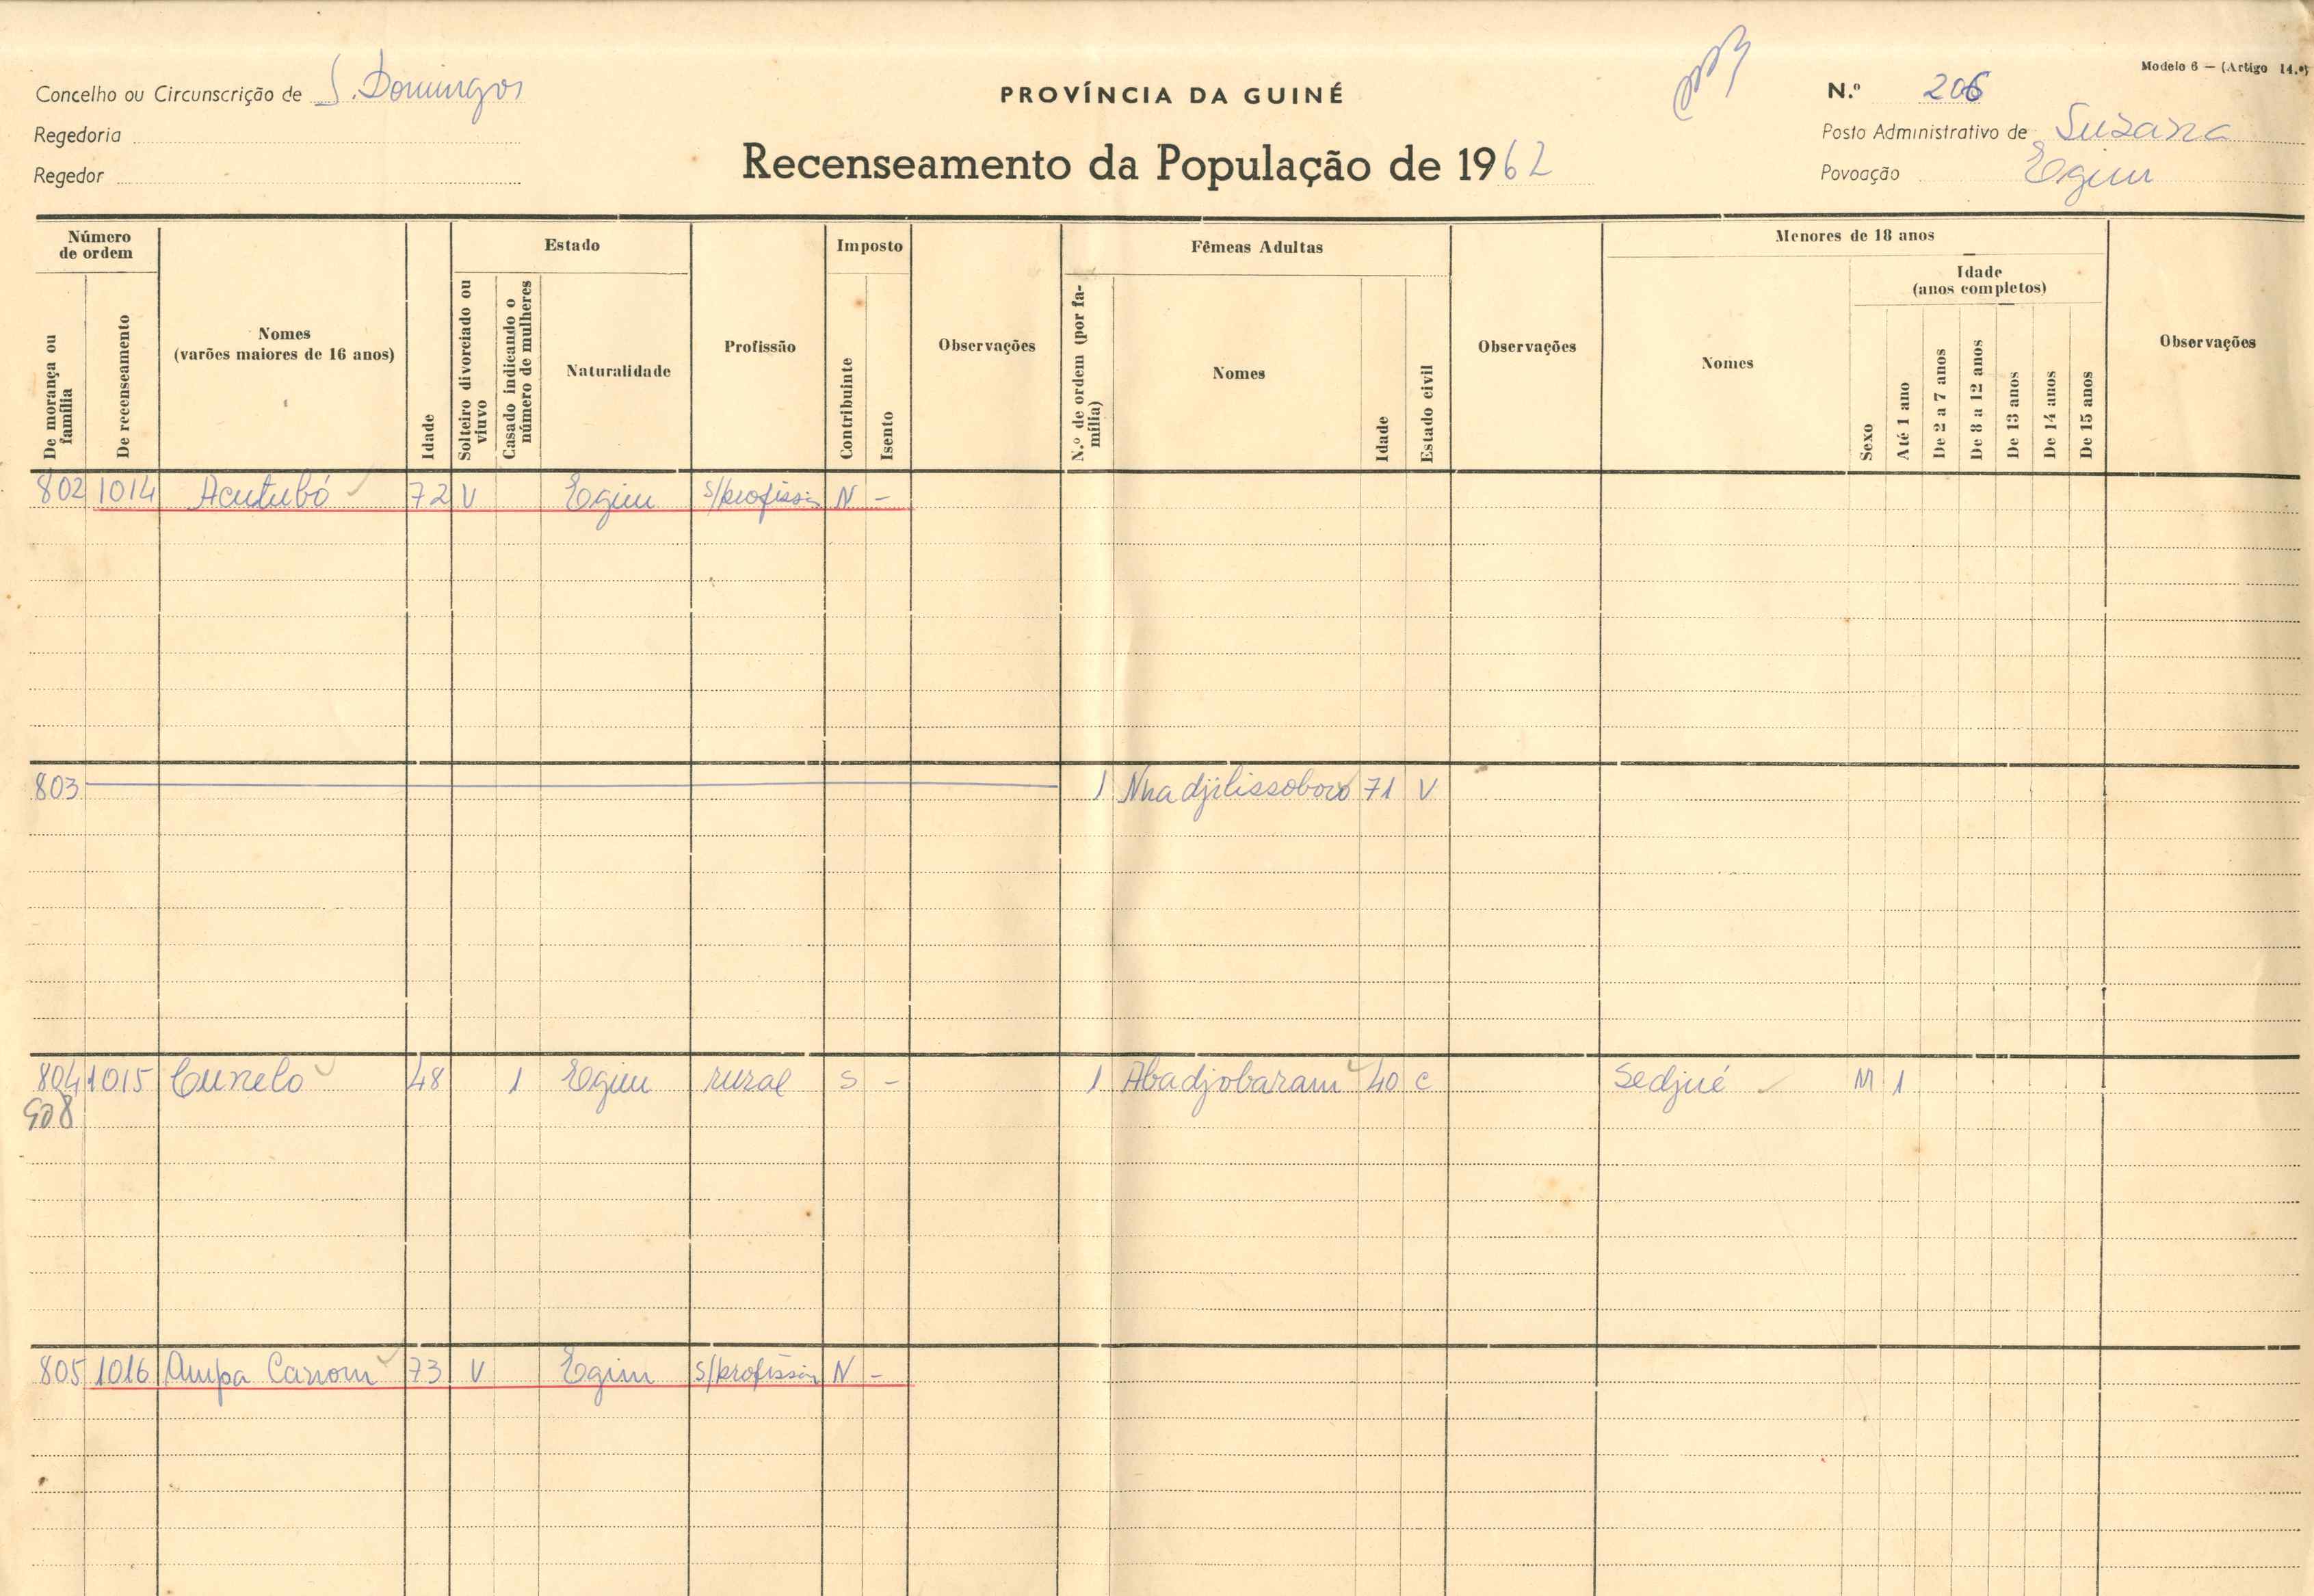 Modelo 6 — (Artigo 14.º)
Concelho ou Circunscrição de S. Domingos
PROVÍNCIA DA GUINÉ
N.º 206
Regedoria
Recenseamento da População de 1962
Posto Administrativo de Suzana
Regedor
Povoação Egim
Número de ordem
De morança ou família
De recenseamento
Nomes
(varões maiores de 16 anos)
Idade
Estado
Solteiro divorciado ou viuvo
Casado indicando o número de mulheres
Naturalidade
Profissão
Imposto
Contribuinte
Isento
Observações
Fêmeas Adultas
N.º de ordem (por família)
Nomes
Idade
Estado civil
Observações
Menores de 18 anos
Nomes
Idade
(anos completos)
Sexo
Até 1 ano
De 2 a 7 anos
De 8 a 12 anos
De 13 anos
De 14 anos
De 15 anos
Observações
802 1014 Acutubó 72 V Egim s/profissão N -
803 1 Nhadjilissoboro 71 V
804 1015 Cunelo 48 1 Egim rural S - 1 Abadjobaram 40 C Sedjué M 1
908
805 1016 Ampa Canom 73 V Egim s/profissão N -